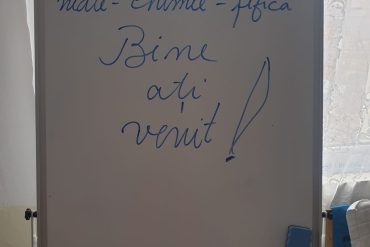 - chimie - fizică
Bine
ați
venit!